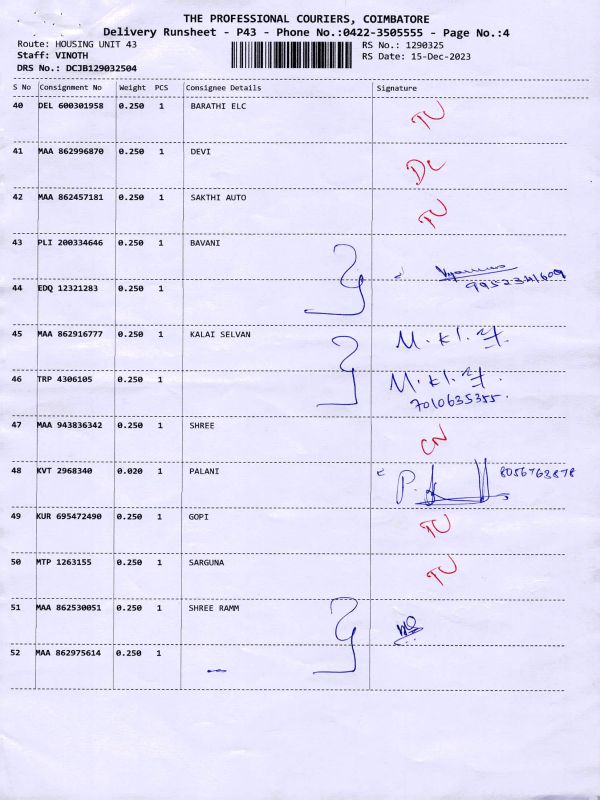 THE PROFESSIONAL COURIERS, COIMBATORE
Delivery Runsheet - P43 - Phone No.:0422-3505555 - Page No.:4
Route: HOUSING UNIT 43 RS No.: 1290325
Staff: VINOTH RS Date: 15-Dec-2023
DRS No.: DCJB129032504
S No Consignment No Weight PCS Consignee Details Signature
40 DEL 600301958 0.250 1 BARATHI ELC TU
41 MAA 862996870 0.250 1 DEVI DL
42 MAA 862457181 0.250 1 SAKTHI AUTO TU
43 PLI 200334646 0.250 1 BAVANI
9952341609
44 EDQ 12321283 0.250 1
45 MAA 862916777 0.250 1 KALAI SELVAN M. kl.
46 TRP 4306105 0.250 1 M. kl.
7010635355.
47 MAA 943836342 0.250 1 SHREE CN
48 KVT 2968340 0.020 1 PALANI P. 8056763878
49 KUR 695472490 0.250 1 GOPI TU
50 MTP 1263155 0.250 1 SARGUNA TU
51 MAA 862530051 0.250 1 SHREE RAMM
52 MAA 862975614 0.250 1